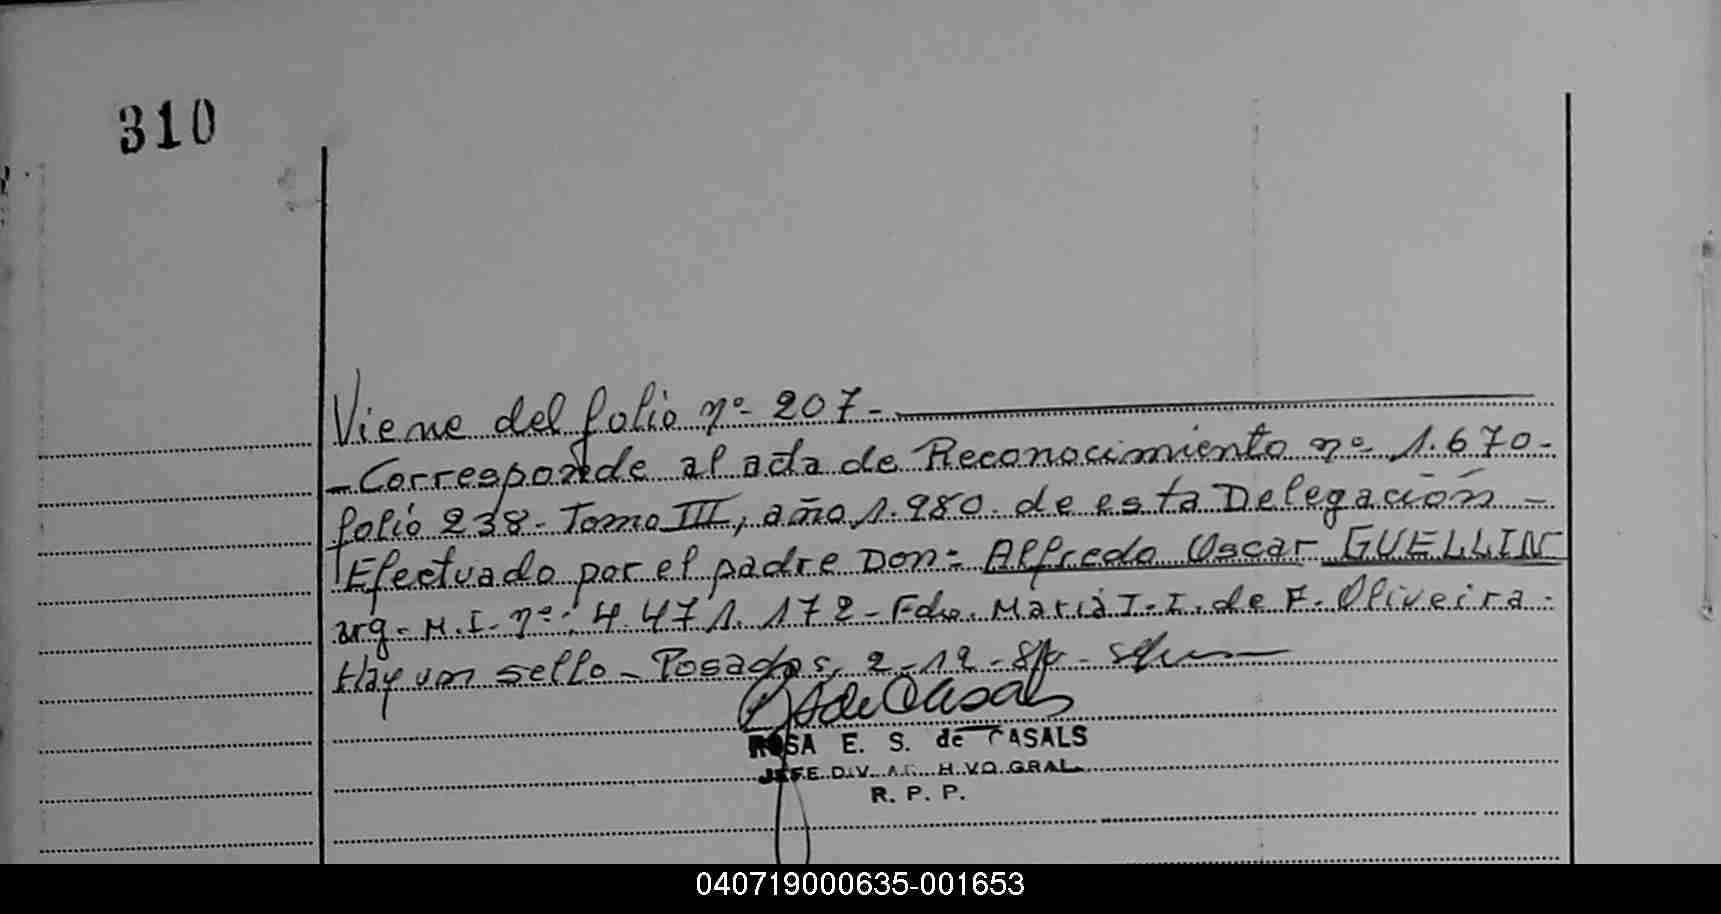 310
Viene del folio nº 207-
- Corresponde al acta de Reconocimiento nº 1.670-
folio 238- Tomo III, año 1.980. de esta Delegación -
Efectuado por el padre Don: Alfredo Oscar GUELLIN
arg- M.I- nº: 4.471.172- Fdo. María I.I. de F. Oliveira-
Hay un sello- Posadas, 2-12-
ROSA E. S. de CASALS
JEFE DIV. GRAL.
R. P. P.
040719000635-001653